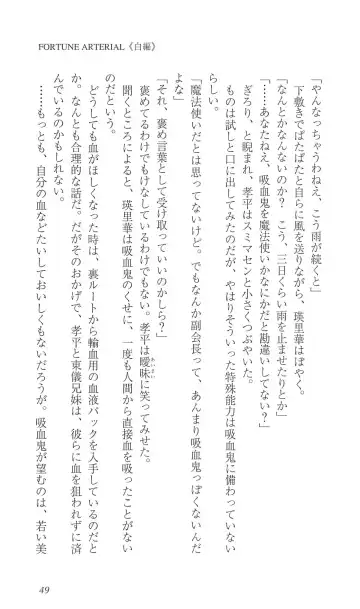 FORTUNE ARTERIAL《白編》
「やんなっちゃうわねえ、こう雨が続くと」
下敷きでぱたぱたと自らに風を送りながら、瑛里華はぼやく。
「なんとかなんないのか？　こう、三日くらい雨を止ませたりとか」
「……あなたねえ、吸血鬼を魔法使いかなにかだと勘違いしてない？」
ぎろり、と睨まれ、孝平はスミマセンと小さくつぶやいた。
ものは試しと口に出してみたのだが、やはりそういった特殊能力は吸血鬼に備わっていない
らしい。
「魔法使いだとは思ってないけど。でもなんか副会長って、あんまり吸血鬼っぽくないんだ
よな」
「それ、褒め言葉として受け取っていいのかしら？」
褒めてるわけでもけなしているわけでもない。孝平は曖昧に笑ってみせた。
聞くところによると、瑛里華は吸血鬼のくせに、一度も人間から直接血を吸ったことがない
のだという。
どうしても血がほしくなった時は、裏ルートから輸血用の血液パックを入手しているのだと
か。なんとも合理的な話だ。だがそのおかげで、孝平と東儀兄妹は、彼らに血を狙われずに済
んでいるのかもしれない。
……もっとも、自分の血などたいしておいしくもないだろうが。吸血鬼が望むのは、若い美
49